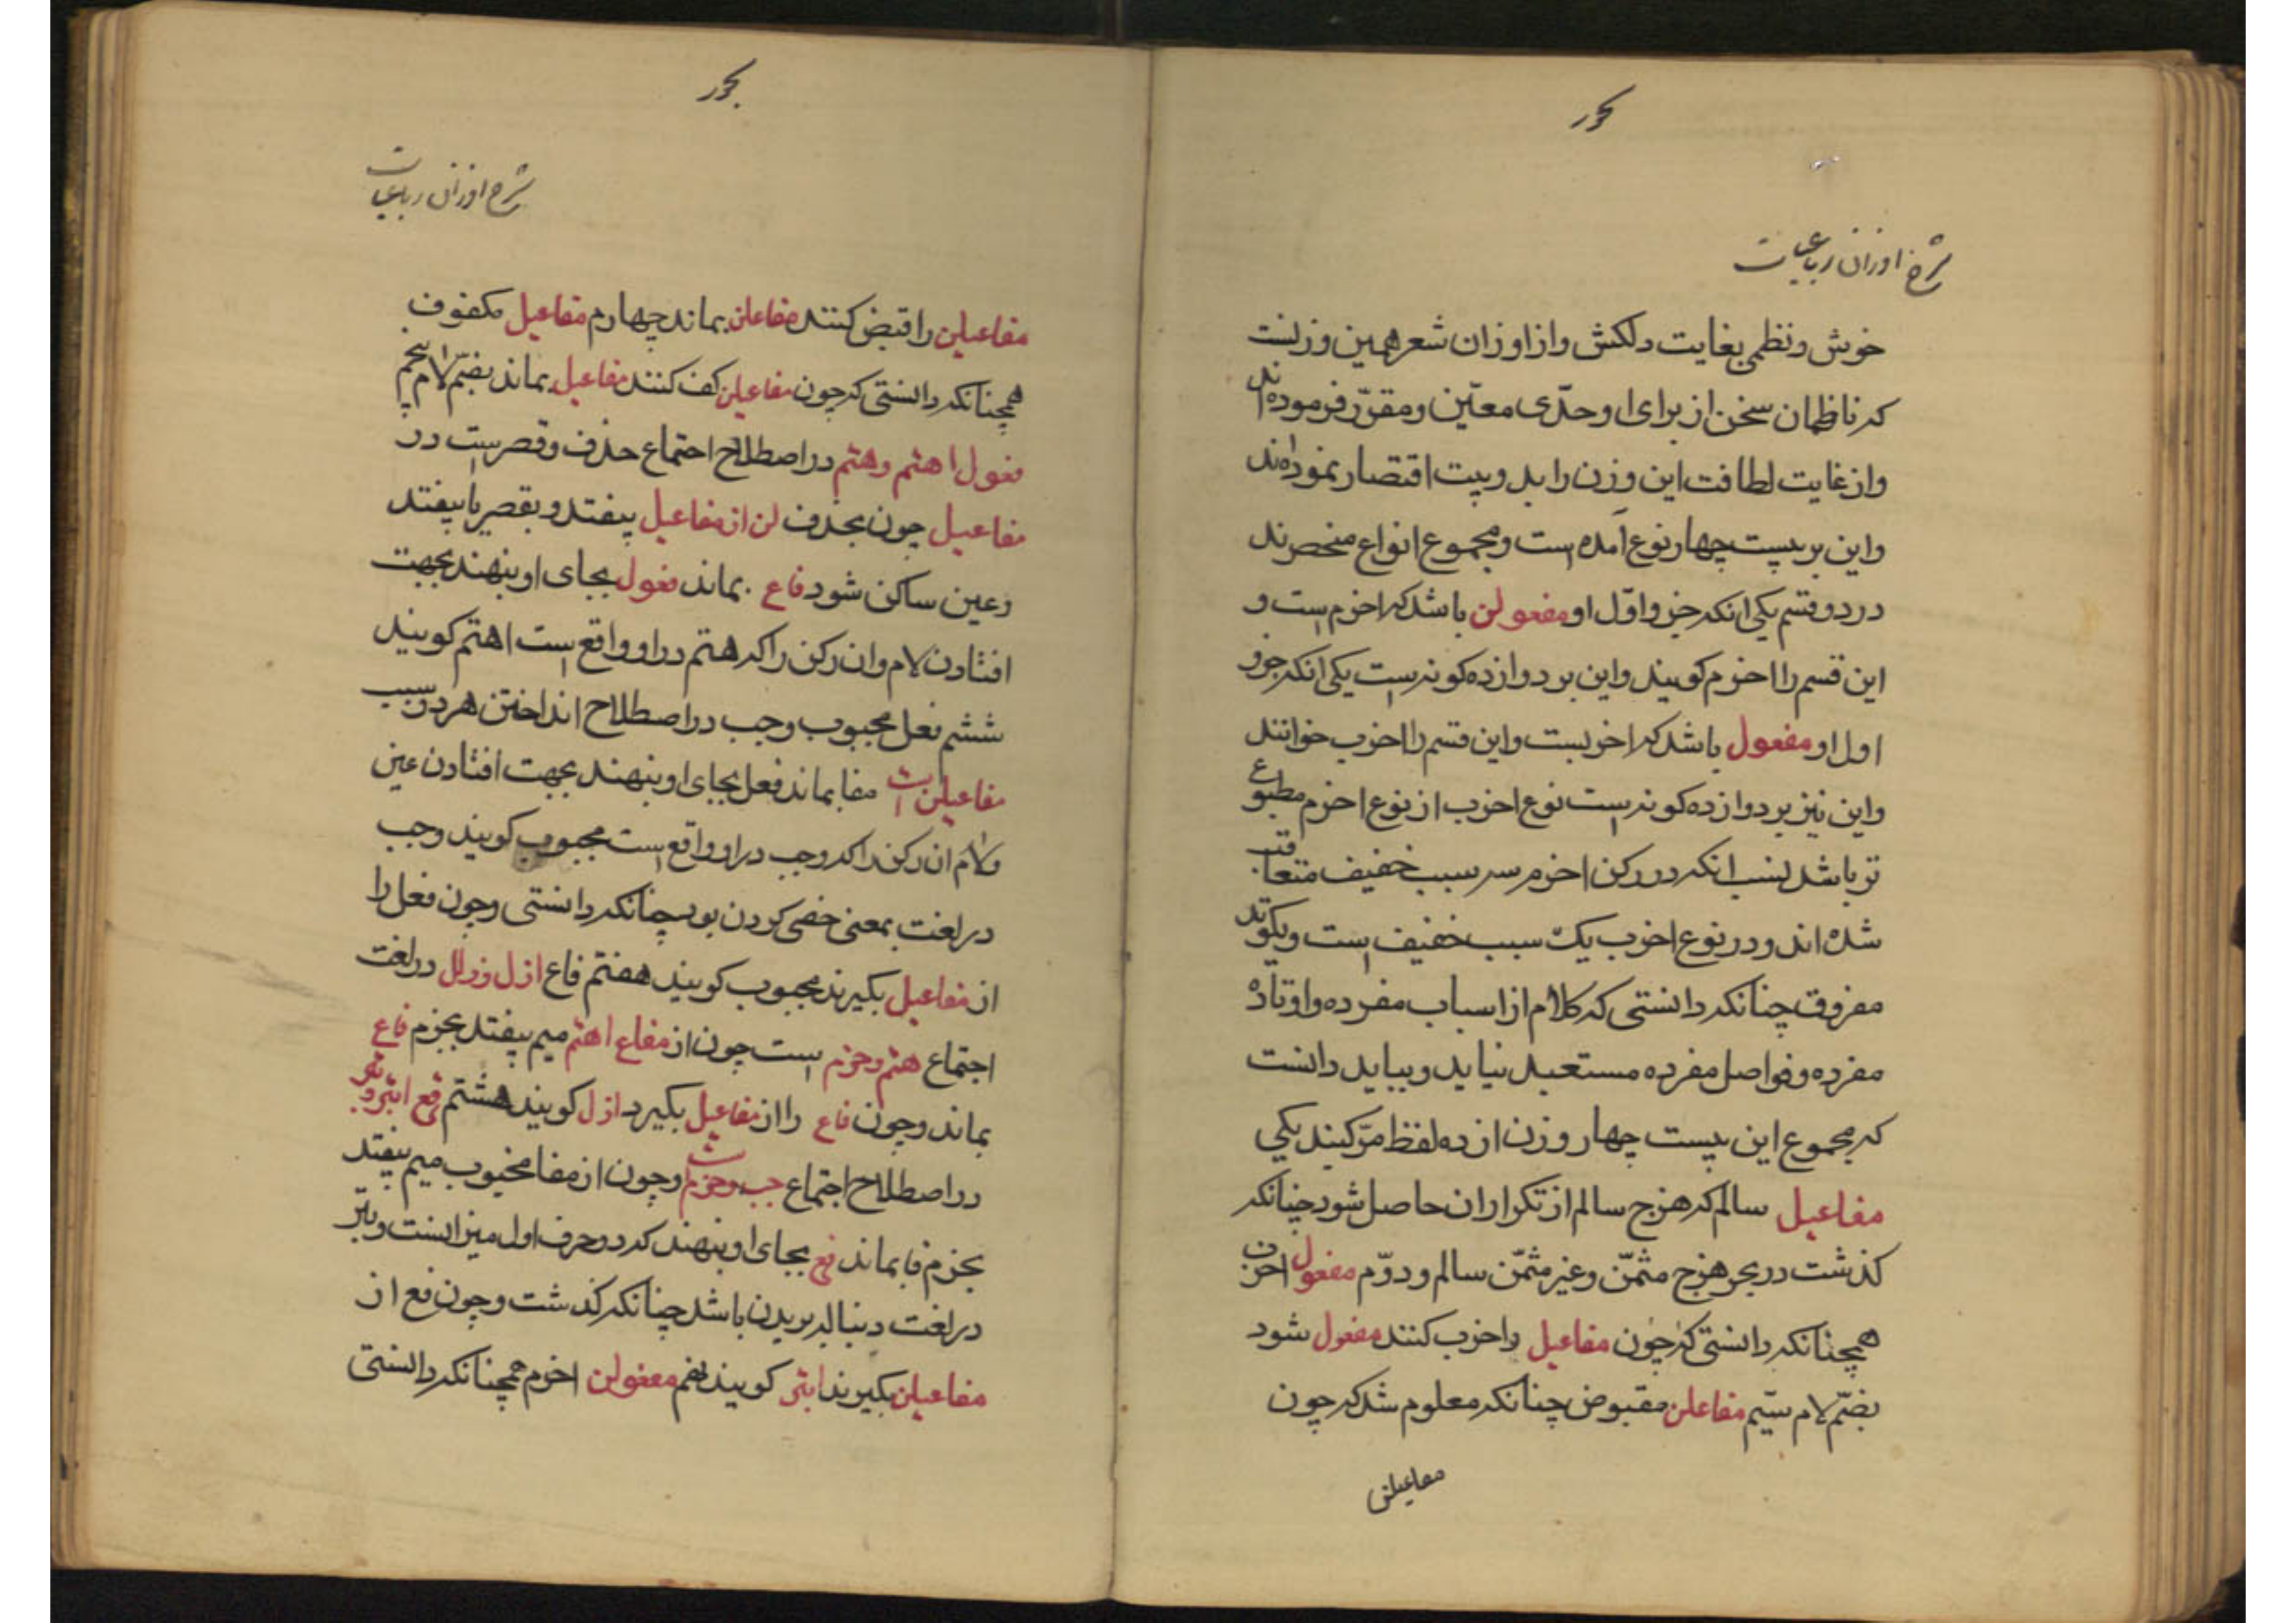 بحور
شرح اوزان رباعیات
خوش ونظمی بغایت دلکش واز اوزان شعر همین وزنست
که ناظمان سخن از برای او حدّی معیّن ومقرّر فرموده اند
واز غایت لطافت این وزن را بدو بیت اقتصار نموده‌اند
واین بر بیست چهار نوع آمده است ومجموع انواع منحصرند
در دو قسم یکی انکه جزو اوّل او مفعولن باشد که اخرم است و
این قسم را اخرم کویند واین بر دوازده کونه است یکی انکه جزو
اول او مفعول باشد که اخربست واین قسم را اخرب خوانند
واین نیز بر دوازده کونه است نوع اخرب از نوع اخرم مطبوع
تر باشد لنسب انکه در رکن اخرم سه سبب خفیف متعاقب
شده اند ودر نوع اخرب یک سبب خفیف است ویکوتد
مفروق چنانکه دانستی که کلام از اسباب مفرده واوتاد
مفرده وفواصل مفرده مستعبد نیاید وبباید دانست
که مجموع این بیست چهار وزن از ده لفظ مرّکبند یکی
مفاعیل سالم که هزج سالم از تکرار ان حاصل شود چنانکه
کذشت در بحر هزج مثمّن وغیر مثمّن سالم ودوّم مفعول اخرب
همچنانکه دانستی که چون مفاعیل را خرب کنند مفعول شود
بضمّ لام سیّم مفاعلن مقبوض چنانکه معلوم شد که چون
مفاعیلن
بحور
شرح اوزان رباعیات
مفاعیلن را قبض کنند مفاعلن بماند چهارم مفاعیل مکفوف
همچنانکه دانستی که چون مفاعیلن کف کنند مفاعیل بماند بضمّ لام پنجم
فعول اهتم وهتم در اصطلاح اجتماع حذف وقصر است در
مفاعیل چون بحذف لن از مفاعیل بیفتد وبقصر یا بیفتد
وعین ساکن شود فاع بماند فعول بجای او بنهند بجهت
افتادن لام وان رکن را که هتم در او واقع است اهتم کویند
ششم فعل مجبوب وجب در اصطلاح انداختن هر دو سبب
مفاعیلن است مفا بماند فعل بجای او بنهند بجهت افتادن عین
ولام ان رکن را که وجب در او واقع است مجبوب کویند وجب
در لغت بمعنی خصی کردن بود چنانکه دانستی وچون فعل را
از مفاعیل بکیرند مجبوب کویند هفتم فاع ازل وزلل در لغت
اجتماع هتم وخرم است چون از مفاع اهتم میم بیفتد بخرم فاع
بماند وچون فاع را از مفاعیل بکیرد ازل کویند هشتم فع ابتر وبتر
در اصطلاح اجتماع جب وخرم است وچون از مفا مخبوب میم بیفتد
بخرم فا بماند فع بجای او بنهند که دو حرف اول میزانست وبتر
در لغت دنباله بریدن باشد چنانکه کذشت وچون فع از
مفاعیلن بکیرند ابتر کویند نهم مفعولن اخرم همچنانکه دانستی